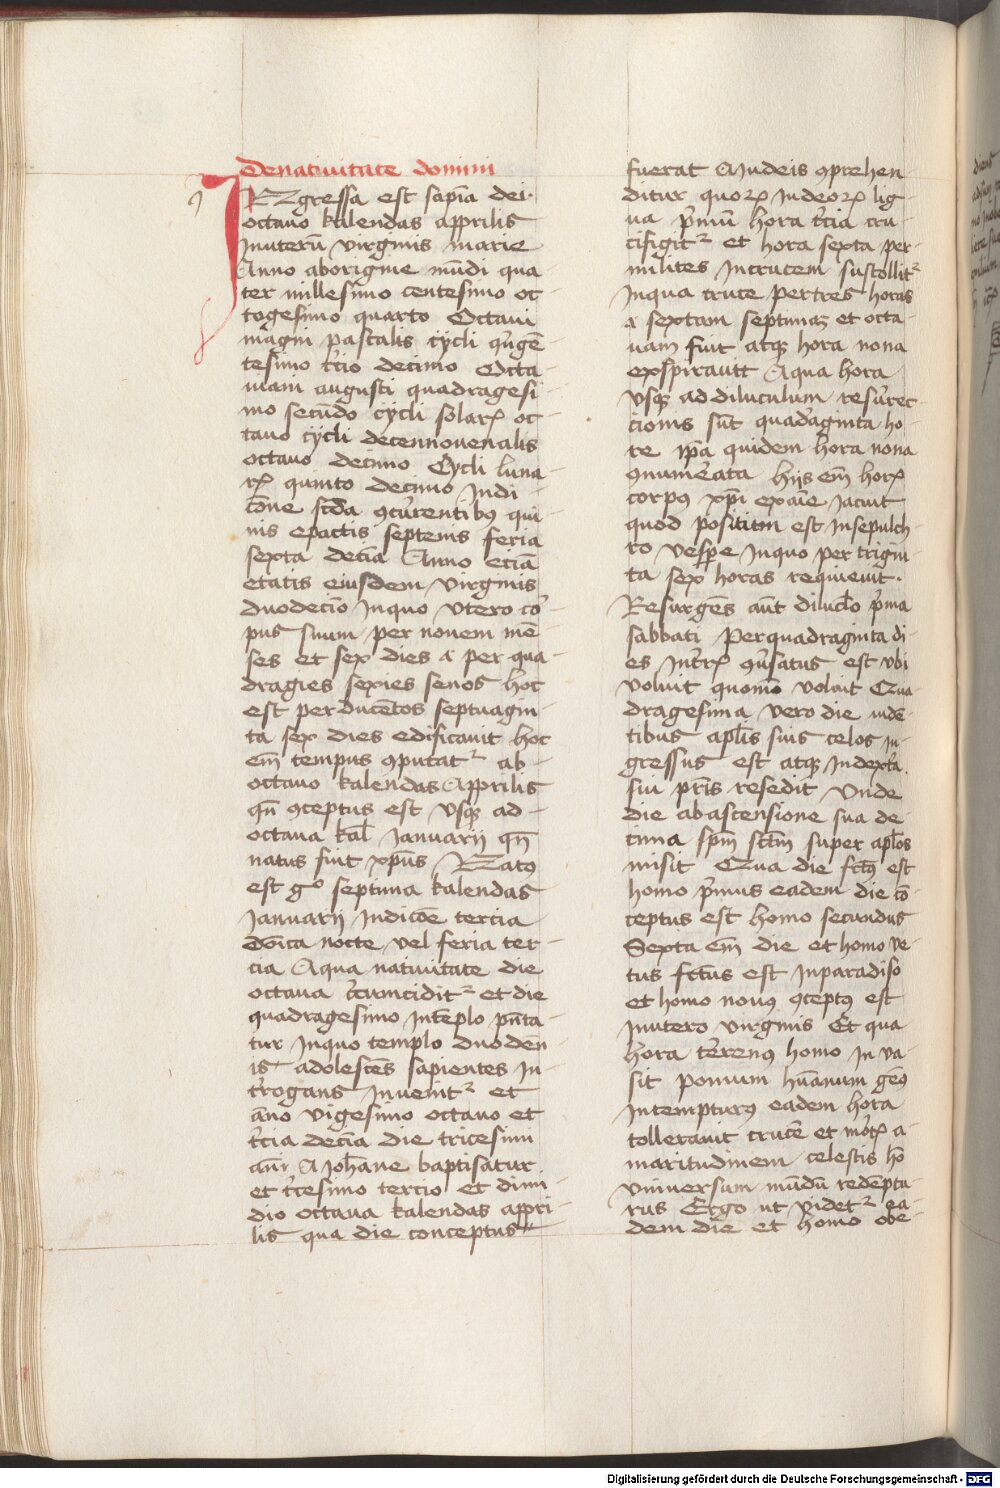 De natiuitate domini
INgressa est sapīa dei·
octauo kalendas apprilis
Inuterū virginis marie
Anno aborigine mūdi qua
ter millesimo centesimo oc
togesimo quarto Octaui
magni pascalis cycli qͥngē
tesimo t̄cio decimo Octa
uiam augusti quadragesi
mo secūdo cycli solarꝝ oc
tauo cycli decennouenalis
octauo decimo Cycli luna
rꝝ quinto decimo Indi
cōne scd̄a ꝯcurentibꝰ qui
nis epactis septems feria
sexta decīa Anno eciā
etatis eiusdem virginis
duodecīo Inquo vtero cor
pus suum per nouem mē
ses et sex dies a per qua
dragies sexies senos hoc
est per ducētos septuagin
ta sex dies edificauit hoc
em̄ tempus ꝯputatᷣ ab
octauo kalendas Apprilis
qn̄ ꝯceptus est vsqꝫ ad
octaua kal̄ Januarij qn̄
natus fuit xp̄us Natꝰ
est gͦ septima kalendas
Januarij Indicōe tercia
dōica nocte vel feria ter
cia Aqua natiuitate die
octaua c̄cumciditᷣ et die
quadragesimo Intēplo pn̄ta
tur Inquo templo duoden
is adolescēs sapientes In
t̄rogans Inuenitᷣ et
āno vigesimo octauo et
t̄cia decīa die tricesimi
ani A Joh̄ane baptisatur
et t̄cesimo tercio et dimi
dio octaua kalendas appri
lis qua die conceptus
fuerat A Iudeis ꝯprehen
ditur quorꝝ Iudeorꝝ lig
ua pͥmū hora t̄cia cru
cifigitᷣ et hora sexta per
milites Incrucem sustollitᷣ
Inqua cruce per tres horas
a sextam septimaꝫ et octa
uam fuit atqꝫ hora nona
exspirauit Aqua hora
vsqꝫ ad diluculum resurec
tionis sūt quadraginta ho
re ip̄a quidem hora nona
ꝯnumerata hijs em̄ horꝝ
corpꝰ xp̄i exaīe Iacuit
quod positum est Insepulch
ro vesp̄e Inquo per trigin
ta sex horas requieuit·
Resurgēs aūt diluc̄lo pͥma
sabbati Perquadraginta di
es Int̄rꝝ ꝯūsatus est vbi
voluit quomō voluit Qua
dragesima vero die vidē
tibus apl̄is suis celos in
gressus est atqꝫ Indext̄a
sui pr̄is resedit Unde
die abascensione sua de
cima sp̄m sc̄tm super apl̄os
misit Qua die fc̄tꝰ est
homo pͥmus eadem die cō
ceptus est homo secundus
Sexta em̄ die et homo ve
tus fc̄tus est Inparadiso
et homo nouꝰ ꝯceptꝰ est
Inutero virginis Et qua
hora terrenꝰ homo In va
sit pomum hūanum genꝰ
Intempturꝰ eadem hora
tollerauit crucē et mortꝝ a
maritudinem celestis hō
vniuersum mūdū redēptu
rus Ergo ut videtᷣ ea
dem die et homo obe
Digitalisierung gefördert durch die Deutsche Forschungsgemeinschaft - DFG